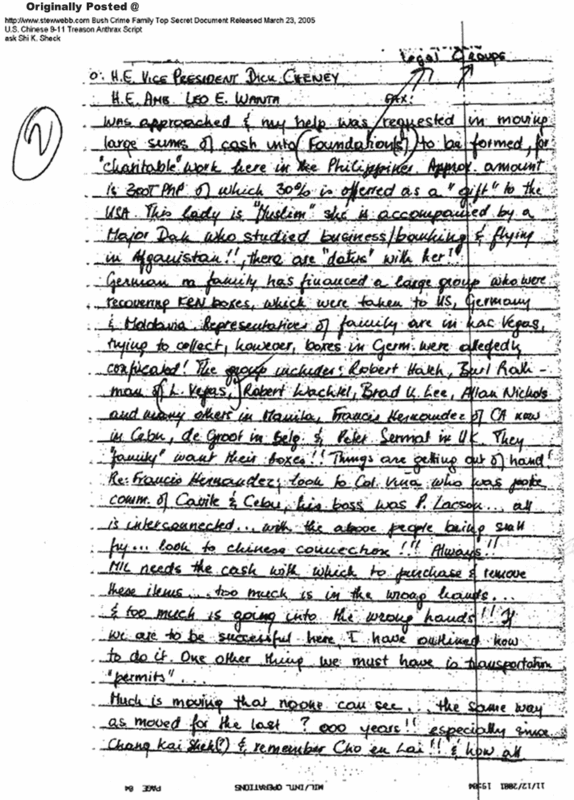 Originally Posted @
http://www.stewwebb.com Bush Crime Family Top Secret Document Released March 23, 2005
U.S. Chinese 9-11 Treason Anthrax Script
ask Shi K. Sheck
Legal Groups
O: H.E. VICE PRESIDENT DICK CHENEY
H.E. AMB. LEO E. WANTA FAX:
2
was approached & my help was requested in moving
large sums of cash into (Foundation(s)) to be formed, for
"charitable" work here in the Philippines. Approx. amount
is 300T PhP of which 30% is offered as a "gift" to the
USA. This lady is "Muslim" she is accompanied by a
Major Dak who studied business/banking & flying
in Afganistan!!, there are "datus" with her!
German family has financed a large group who were
recovering boxes, which were taken to US, Germany
& Moldavia. Representatives of family are in Las Vegas,
trying to collect, however, boxes in Germ. were allegedly
conficated! The group includes: Robert Burl
man of L. Vegas, Robert Wachtel, Brad U. Lee, Allan Nichols
and many others in Manila, Francis Hernandez of CA now
in Cebu, de Groot in Belg. & Peter in UK. They
"family" want their boxes!! Things are getting out of hand!
Re: Francis Hernandez; look to Col. who was
comm. of Cavite & Cebu, his boss was P. Lacson... all
is interconnected... with the above people being small
fry... look to chinese connection!!! Always!!
MIL needs the cash with which to purchase & remove
these items... too much is in the wrong hands...
& too much is going into the wrong hands!! If
we are to be successful here, I have outlined how
to do it. One other thing we must have is transportation
"permits"...
Much is moving that noone can see... the same way
as moved for the last ? 000 years!! especially since
Chang Kai Shek(?) & remember Cho en Lai!! & how all
11/12/2001 MIL/INTL OPERATIONS PAGE 04